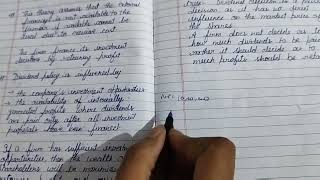 This theory assumes that the external
financing is not available to the
financer of available cannot be
used due to excessive cost
The firm finance its investment
decisions by retaining profit
Dividend policy is influenced by
the company's investment opportunities
the availability of internally
generated profits where dividends
are paid only after all investment
proposals have been financed
If a firm has sufficient investment
opportunities then the wealth of
shareholders will be
decision as it has no direct
influence on the market price of
the shares.
A firm does not decide as to
how much dividends to be paid
rather it should decide as to
much profits should be retain